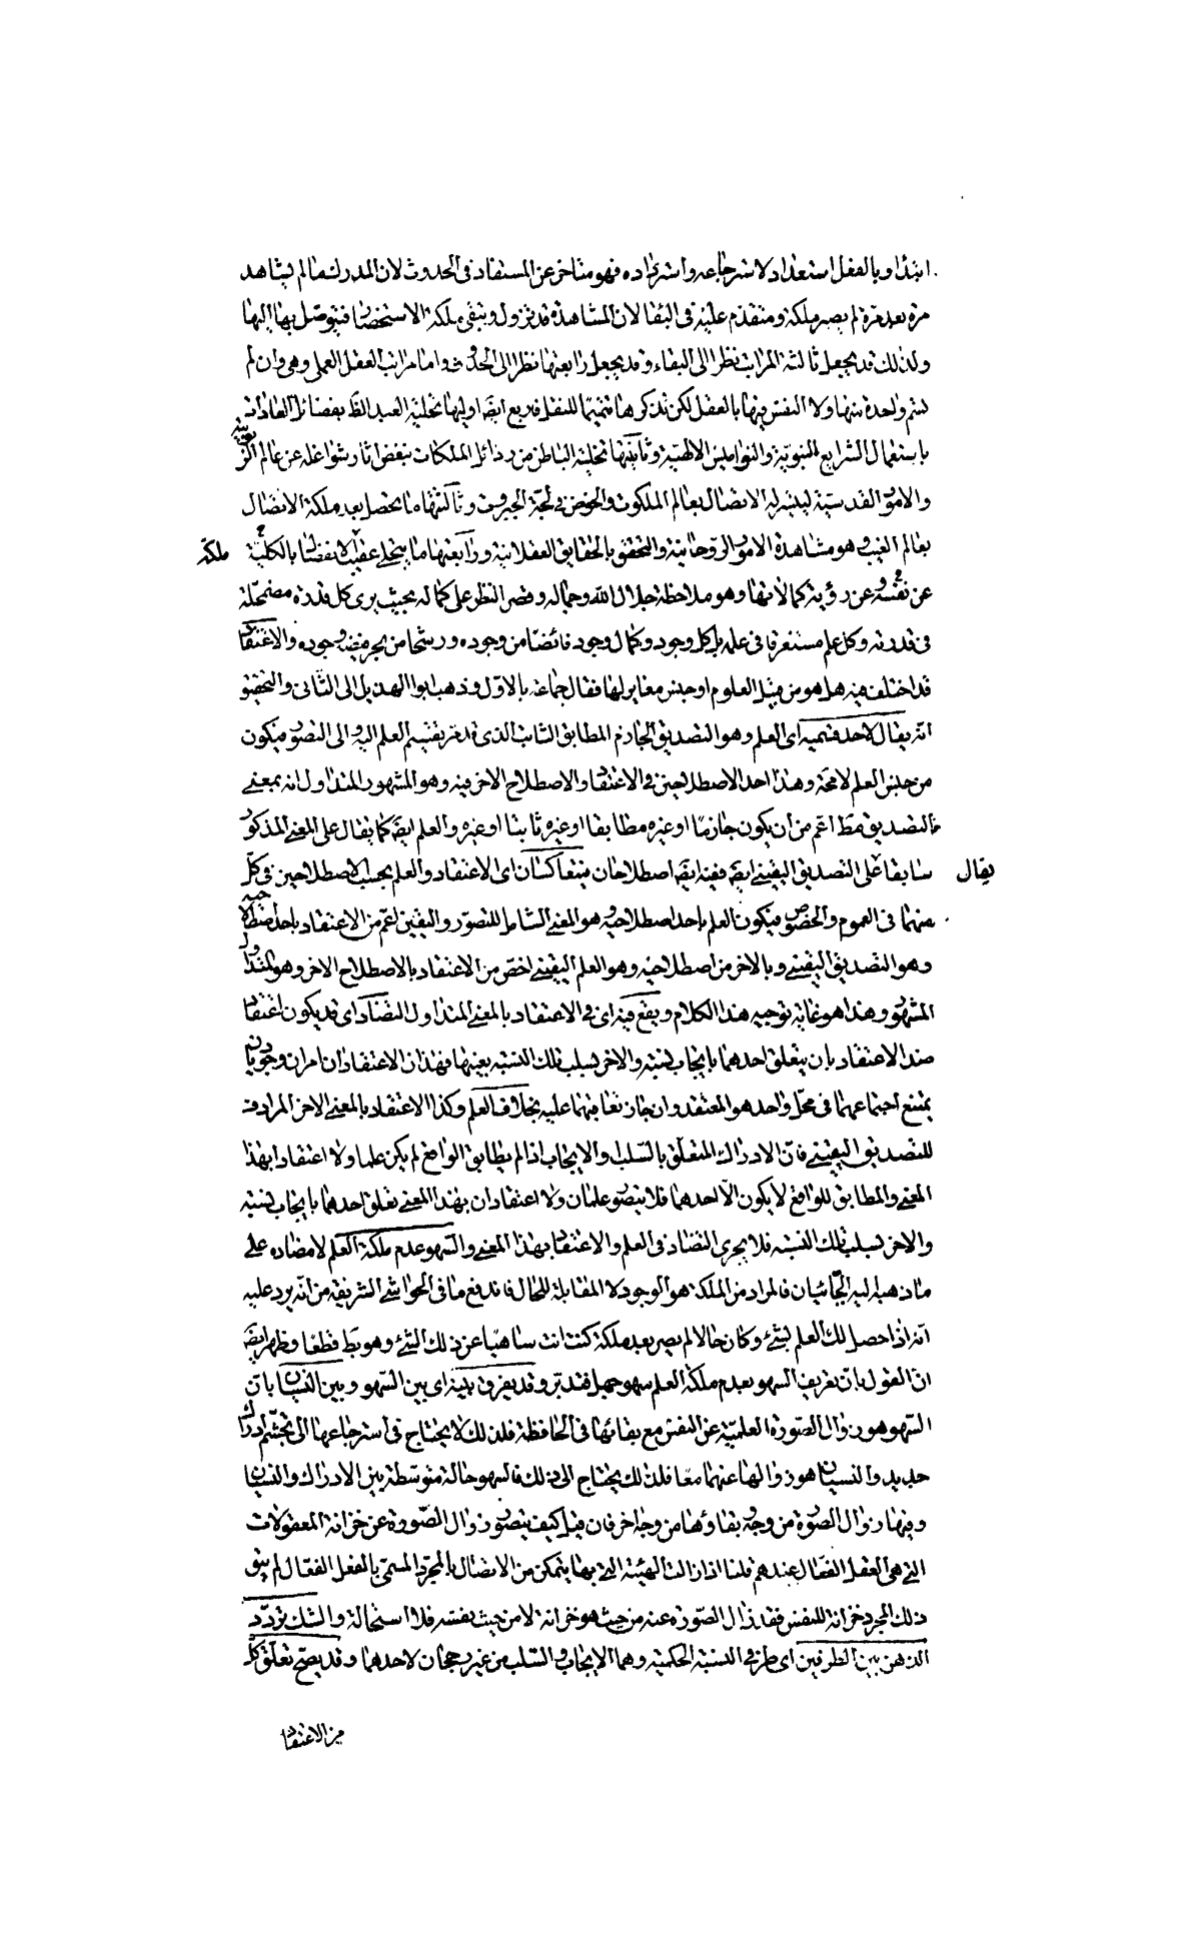 ابتداء وبالفعل استعداد لاسترجاعه واسترداده فهو متاخر عن المستفاد فى الحدوث لان المدرك ما لم يشاهد
مرة بعد مرة لم يصر ملكة ومتقدم عليه فى البقا لان المشاهدة قد تزول وتبقى ملكة الاستحضار فيتوصل بها اليها
ولذلك قد يجعل ثالثة المراتب نظرا الى البقاء وقد يجعل رابعتها نظرا الى الحدوث واما مراتب العقل العملى وهى وان لم
يسم واحدة منها ولا النفس فيها بالعقل لكن نذكرها تتميما للنقل فاربع ايضا اوليها تحلية العبد الظ بفضائل العادات
باستعمال الشرايع النبوية والنواميس الالهية وثانيتها تخلية الباطن من رذائل الملكات بنفض اثار شواغله عن عالم الربوبية
والامور القدسية ليتيسر له الاتصال بعالم الملكوت والخوض فى لجة الجبروت وثالثتها ما يحصل بعد ملكة الاتصال
بعالم الغيب وهو مشاهدة الامور الروحانية والتحقق بالحقايق العقلانية ورابعتها ما يتجلى عقيب الانفصال بالكلية
ملكة
عن نفسه وعن رؤية كمالاتها وهو ملاحظة جلال الله وجماله وقصر النظر على كماله بحيث يرى كل قدرة مضمحلة
فى قدرته وكل علم مستغرقا فى علمه بل كل وجود وكمال وجود فائضا من وجوده ورشحا من بحر فيض جوده والاعتقاد
قد اختلف فيه هل هو من قبيل العلوم او جنس مغاير لها فقال جماعة بالاول وذهب ابو الهذيل الى الثانى والتحقيق
انه يقال لاحد قسميه اى العلم وهو التصديق الجازم المطابق الثابت الذى قد مر تقسيم العلم اليه والى التصور فيكون
من جنس العلم لا محة وهذا احد الاصطلاحين فى الاعتقاد والاصطلاح الاخر فيه وهو المشهور المتداول انه بمعنى
التصديق مط اعم من ان يكون جازما او غيره مطابقا او غيره ثابتا او غيره والعلم ايضا كما يقال على المعنى المذكور
سابقا على التصديق اليقينى ايضا ففيه ايضا اصطلاحان فيتعاكسان اى الاعتقاد والعلم بحسب الاصطلاحين فى كل
يقال
منهما فى العموم والخصوص فيكون العلم باحد اصطلاحيه وهو المعنى الشامل للتصور واليقين اعم من الاعتقاد باحد اصطلاحيه
وهو التصديق اليقينى وبالاخر من اصطلاحيه وهو العلم اليقينى اخص من الاعتقاد بالاصطلاح الاخر وهو المتداول
المشهور وهذا هو غاية توجيه هذا الكلام ويقع فيه اى فى الاعتقاد بالمعنى المتداول التضاد اى قد يكون اعتقاد
ضد الاعتقاد بان يتعلق احدهما بايجاب نسبة والاخر بسلب تلك النسبة بعينها فهذان الاعتقادان امران وجوديان
يمتنع اجتماعهما فى محل واحد هو المعتقد وان جاز تعاقبهما عليه بخلاف العلم وكذا الاعتقاد بالمعنى الاخر المرادف
للتصديق اليقينى فان الادراك المتعلق بالسلب والايجاب اذا لم يطابق الواقع لم يكن علما ولا اعتقادا بهذا
المعنى والمطابق للواقع لا يكون الا احدهما فلا يتصور علمان ولا اعتقادان بهذا المعنى تعلق احدهما بايجاب نسبة
والاخر بسلب تلك النسبة فلا يجرى التضاد فى العلم والاعتقاد بهذا المعنى والسهو عدم ملكة العلم لا مضاده على
ما ذهب اليه الجبائيان فالمراد من الملكة هو الوجود لا المقابلة للحال فاندفع ما فى الحواشى الشريفة من انه يرد عليه
انه اذا حصل لك العلم بشئ وكان حالا لم يصر بعد ملكة كنت انت ساهيا عن ذلك الشئ وهو بط قطعا وظهر ايضا
ان القول بان تعريف السهو بعدم ملكة العلم سهو جميل فتدبر وقد يفرق بينه اى بين السهو وبين النسيان بان
السهو هو زوال الصورة العلمية عن النفس مع بقائها فى الحافظة فلذلك لا يحتاج فى استرجاعها الى تجشم ادراك
جديد والنسيان هو زوالها عنهما معا فلذلك يحتاج الى ذلك فالسهو حالة متوسطة بين الادراك والنسيان
وفيها زوال الصورة من وجه وبقاؤها من وجه اخر فان قيل كيف يتصور زوال الصورة عن خزانة المعقولات
التى هى العقل الفعال عندهم قلنا اذا زالت الهيئة التى بها يتمكن من الاتصال بالمجرد المسمى بالعقل الفعال لم يبق
ذلك المجرد خزانة للنفس فقد زال الصورة عنه من حيث هو خزانة لا من حيث نفسه فلا استحالة والشك تردد
الذهن بين الطرفين اى طرفى النسبة الحكمية وهما الايجاب والسلب من غير رجحان لاحدهما وقد يصح تعلق كل
من الاعتقاد